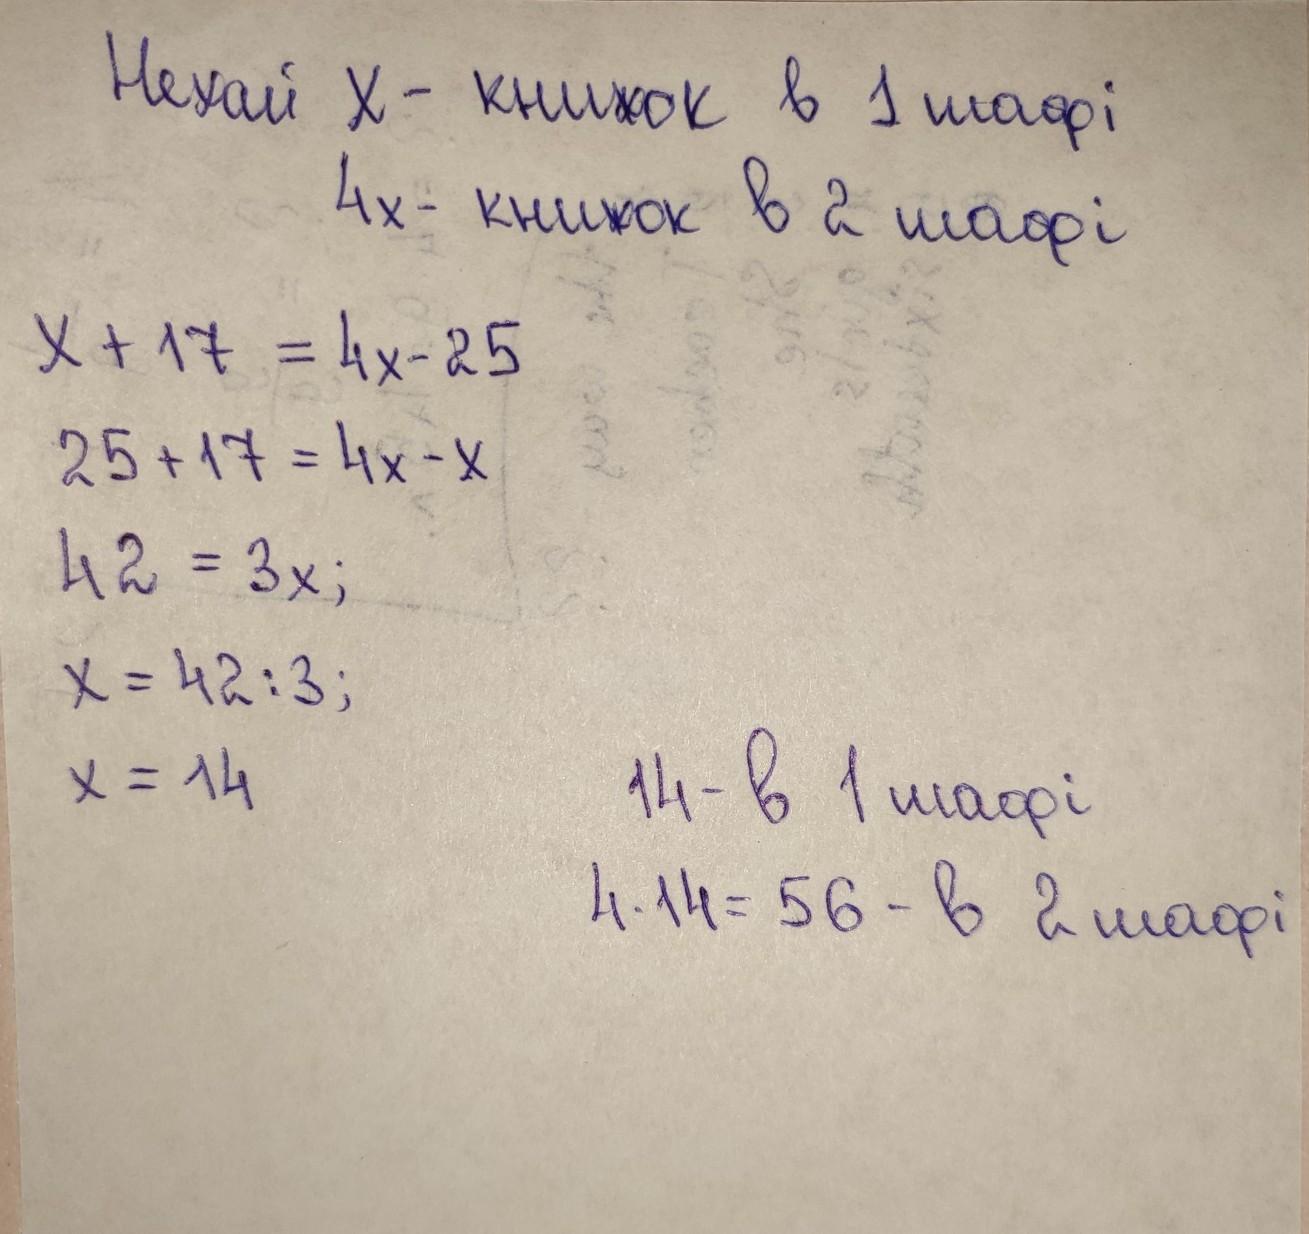 Нехай x - книжок в 1 шафі
4x - книжок в 2 шафі
x + 17 = 4x - 25
25 + 17 = 4x - x
42 = 3x;
x = 42 : 3;
x = 14
14 - в 1 шафі
4 · 14 = 56 - в 2 шафі